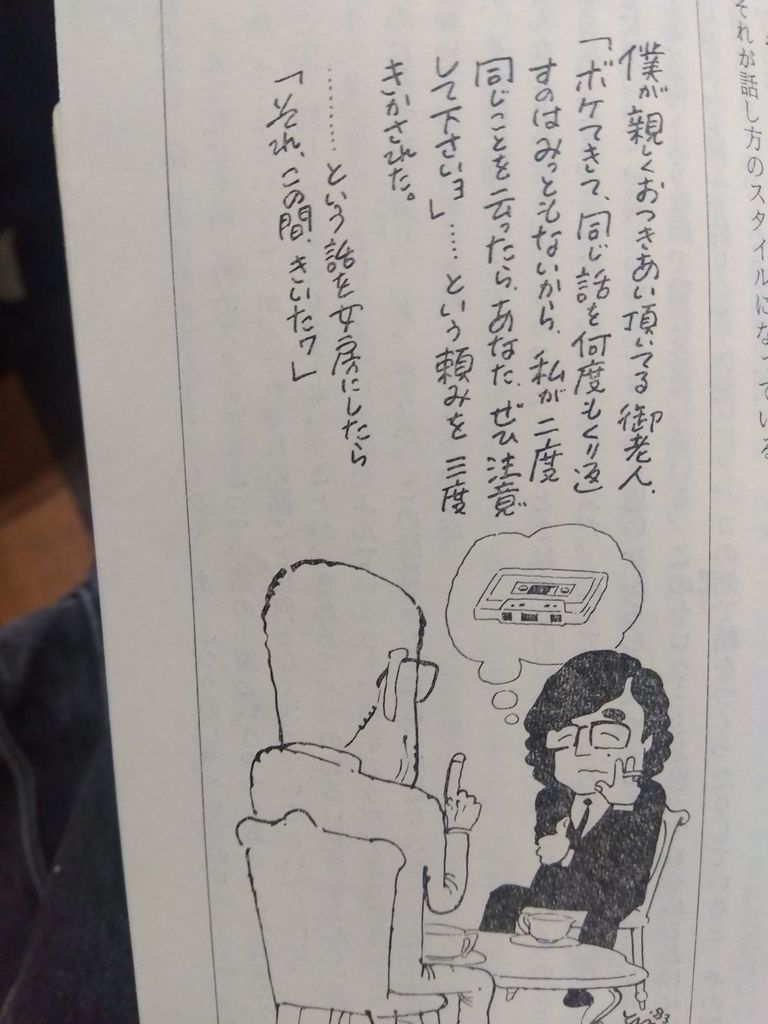 それが話し方のスタイルになっている
僕が親しくおつきあい頂いてる御老人、
「ボケてきて、同じ話を何度もくり返
すのはみっともないから、私が二度
同じことを云ったら、あなた、ぜひ注意
して下さいヨ」……という頼みを三度
きかされた。
………という話を女房にしたら
「それ、この間、きいた？」
'83